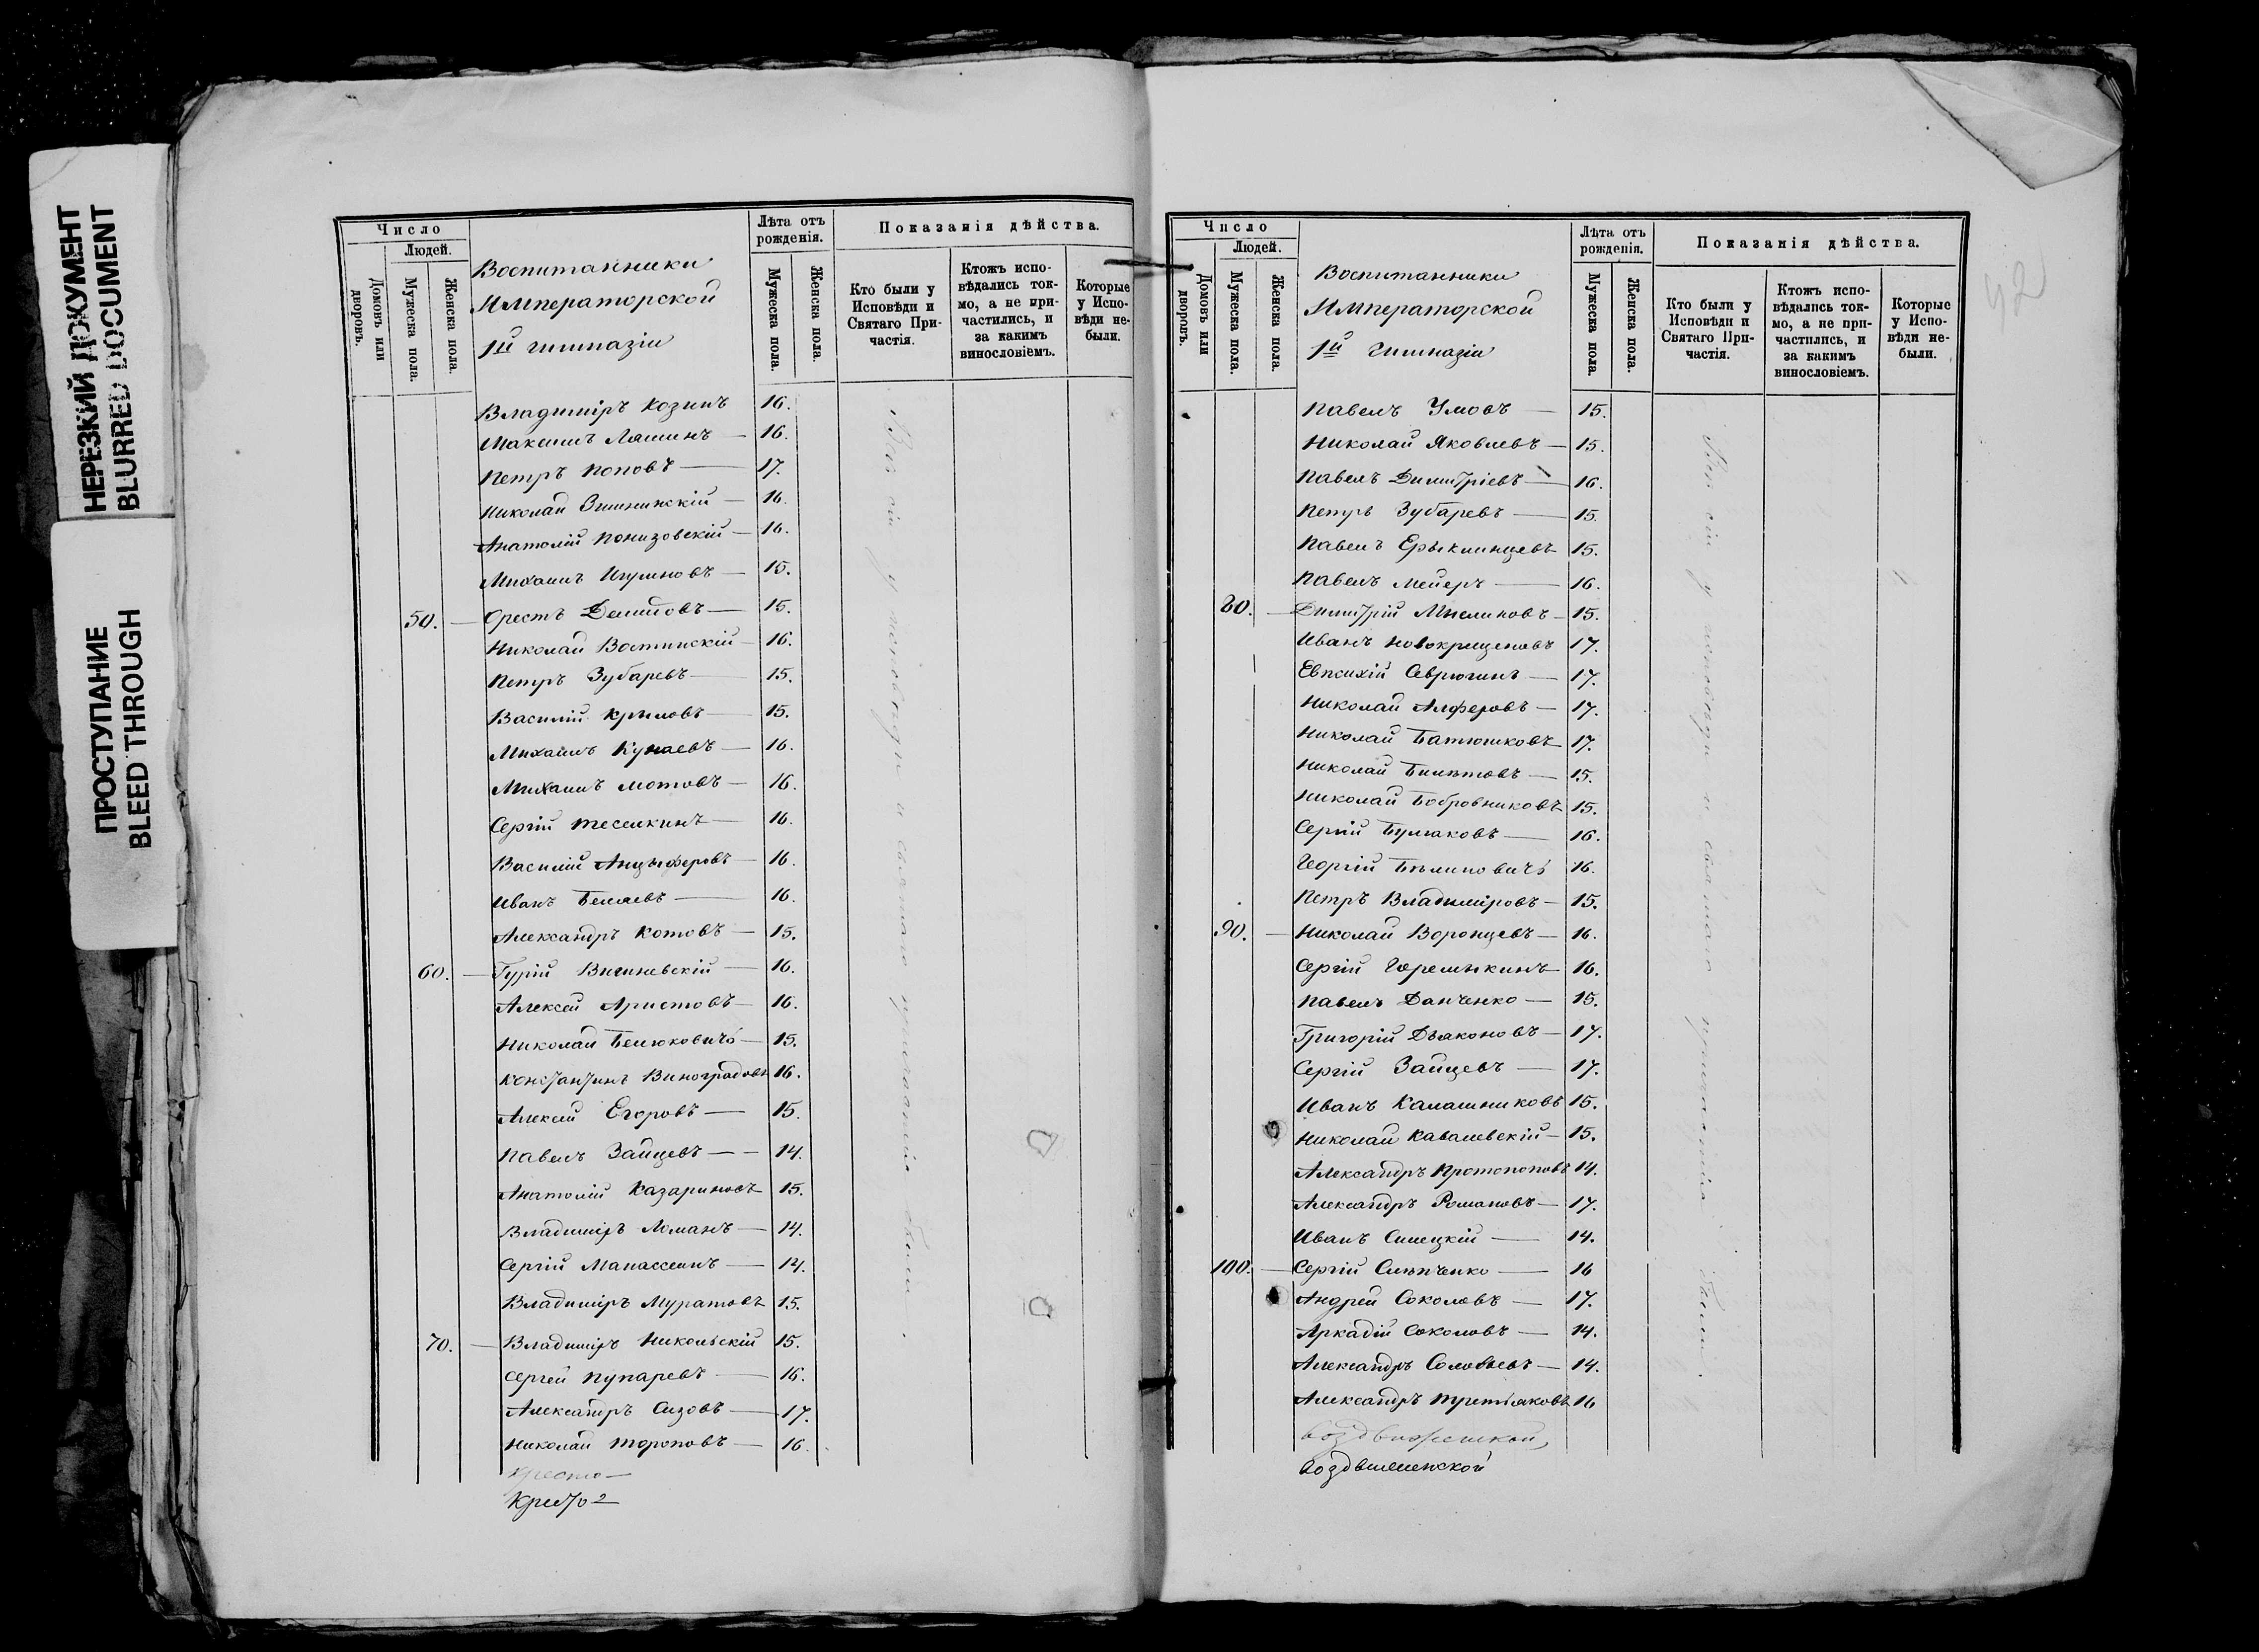 НЕРЕЗКИЙ ДОКУМЕНТ
BLURRED DOCUMENT
ПРОСТУПАНИЕ
BLEED THROUGH
Число
Людей.
Домовъ или дворовъ.
Мужеска пола.
Женска пола.
Воспитанники
Императорской
1й гимназіи
Лѣта отъ рожденія.
Мужеска пола.
Женска пола.
Показанія дѣйства.
Кто были у Исповѣди и Святаго Причастія.
Ктожъ исповѣдались токмо, а не причастились, и за какимъ винословіемъ.
Которые у Исповѣди небыли.
Владиміръ Козинъ 16.
Максимъ Ляминъ — 16.
Петръ Поповъ — 17.
Николай — 16.
Анатолій Понизовскій — 16.
Михаилъ — 15.
50. — Орестъ Демидовъ — 15.
Николай — 16.
Петръ Зубаревъ — 15.
Василій Крыловъ — 15.
Михаилъ Кунаевъ — 16.
Михаилъ Мотовъ — 16.
Сергій Теселкинъ — 16.
Василій Анцыферовъ — 16.
Иванъ Беляевъ — 16.
Александръ Котовъ — 15.
60. — Гурій Вишневскій — 16.
Алексей Аристовъ — 16.
Николай Белюковичъ — 15.
Константинъ Виноградовъ 16.
Алексей Егоровъ — 15.
Павелъ Зайцевъ — — 14.
Анатолій Казариновъ 15.
Владиміръ Ломанъ — 14.
Сергій Манассеинъ — 14.
Владиміръ Муратовъ 15.
70. — Владиміръ Никольскій 15.
Сергей Пупаревъ — 16.
Александръ Сизовъ — 17.
Николай Тороповъ — 16.
Кресто —
Кресто
Вси сіи у исповѣди и святаго причастія были.
Число
Людей.
Домовъ или дворовъ.
Мужеска пола.
Женска пола.
Воспитанники
Императорской
1й Гимназіи
Лѣта отъ рожденія.
Мужеска пола.
Женска пола.
Показанія дѣйства.
Кто были у Исповѣди и Святаго Причастія.
Ктожъ исповѣдались токмо, а не причастились, и за какимъ винословіемъ.
Которые у Исповѣди небыли.
Павелъ Умовъ — 15.
Николай Яковлевъ — 15.
Павелъ Димитріевъ — 16.
Петръ Зубаревъ — 15.
Павелъ Ерыклинцевъ 15.
Павелъ Мейеръ — 16.
80. — Димитрій — 15.
Иванъ Новокрещеновъ 17.
Евпсихій Севрюгинъ — 17.
Николай Алферовъ — 17.
Николай Батюшковъ 17.
Николай Билѣтовъ — 15.
Николай Бобровниковъ 15.
Сергій Булгаковъ — 16.
Георгій Бѣлиновичъ 16.
Петръ Владиміровъ — 15.
90. — Николай Воронцевъ — 16.
Сергій Горемыкинъ 16.
Павелъ Данченко — 15.
Григорій Дьяконовъ — 17.
Сергій Зайцевъ — 17.
Иванъ Калашниковъ 15.
Николай Кавалевскій — 15.
Александръ Протопоповъ 14.
Александръ Романовъ — 17.
Иванъ Синецкій — 14.
100. — Сергій Слѣпченко — 16
Андрей Соколовъ — 17.
Аркадій Соколовъ — 14.
Александръ Соловьевъ — 14.
Александръ Третьяковъ 16
Воздвиженской
Воздвиженской
Вси сіи у исповѣди и святаго причастія были.
42